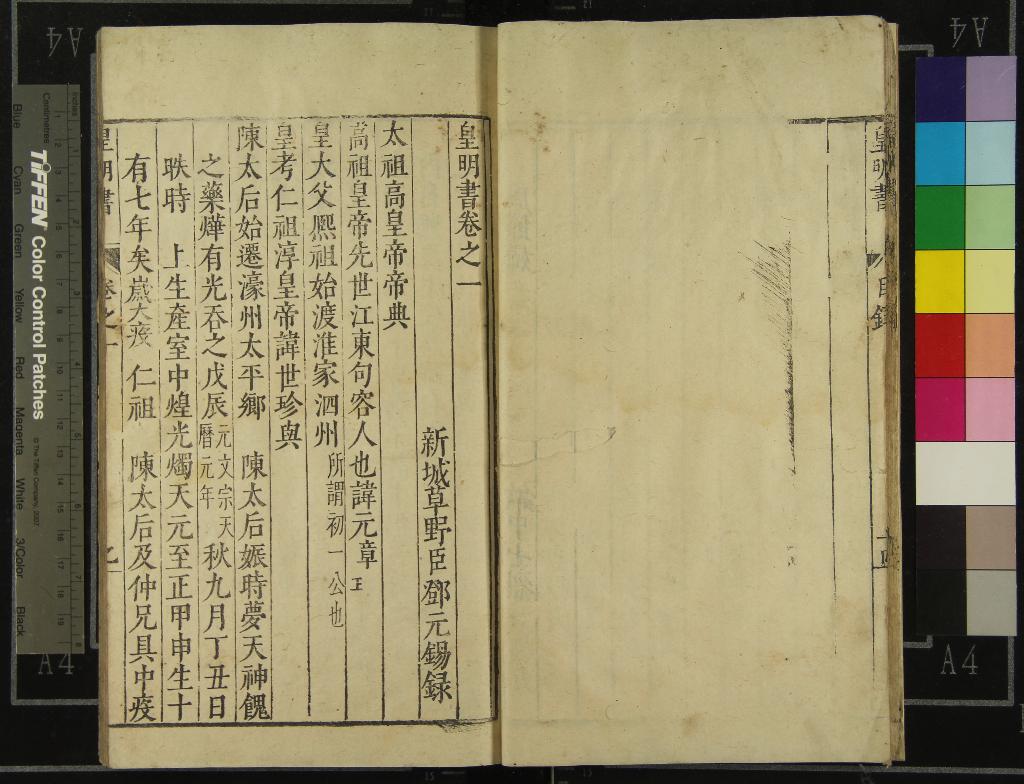 皇明書 目錄
皇明書卷之一
新城草野臣鄧元錫録
太祖高皇帝帝典
高祖皇帝先世江東句容人也諱元章
皇大父熈祖始渡淮家泗州所謂初一公也
皇考仁祖淳皇帝諱世珍與
陳太后始遷濠州太平鄉 陳太后娠時夢天神餽
之藥燁有光吞之戊辰元文宗天曆元年秋九月丁丑日
昳時 上生產室中煌光燭天元至正甲申生十
有七年矣歲大疫 仁祖 陳太后及仲兄具中疫
皇明書 卷之一
A4
A4
A4
A4
TIFFEN Color Control Patches
© The Tiffen Company, 2007
Centimetres
Inches
Blue
Cyan
Green
Yellow
Red
Magenta
White
3/Color
Black